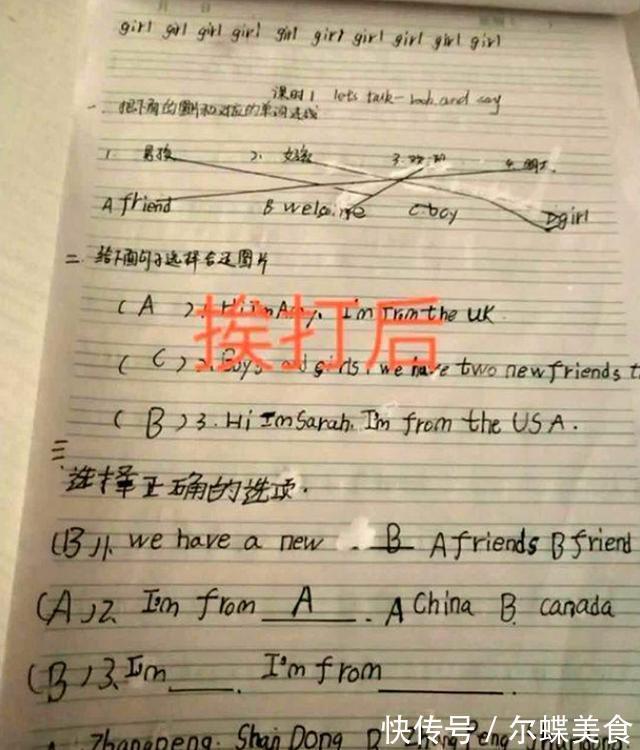 girl girl girl girl girl girl girl girl girl girl
课时1 let's talk-look and say
一、把下面的图片和对应的单词连线
1. 男孩 2. 女孩 3. 4. 朋友.
A friend B welcome C boy D girl
二 给下面句子选择合适图片
(A) Hi I'm Amy. I'm from the UK.
挨打后
(C) 2. Boys and girls, we have two new friends t
(B) 3. Hi I'm Sarah. I'm from the USA.
三、
选择正确的选项.
(B) 1. we have a new B A friends B friend
(A) 2. I'm from A. A China B. canada
(B) 3. I'm____. I'm from____
Zhangpeng. Shan Dong
快传号/尔蝶美食